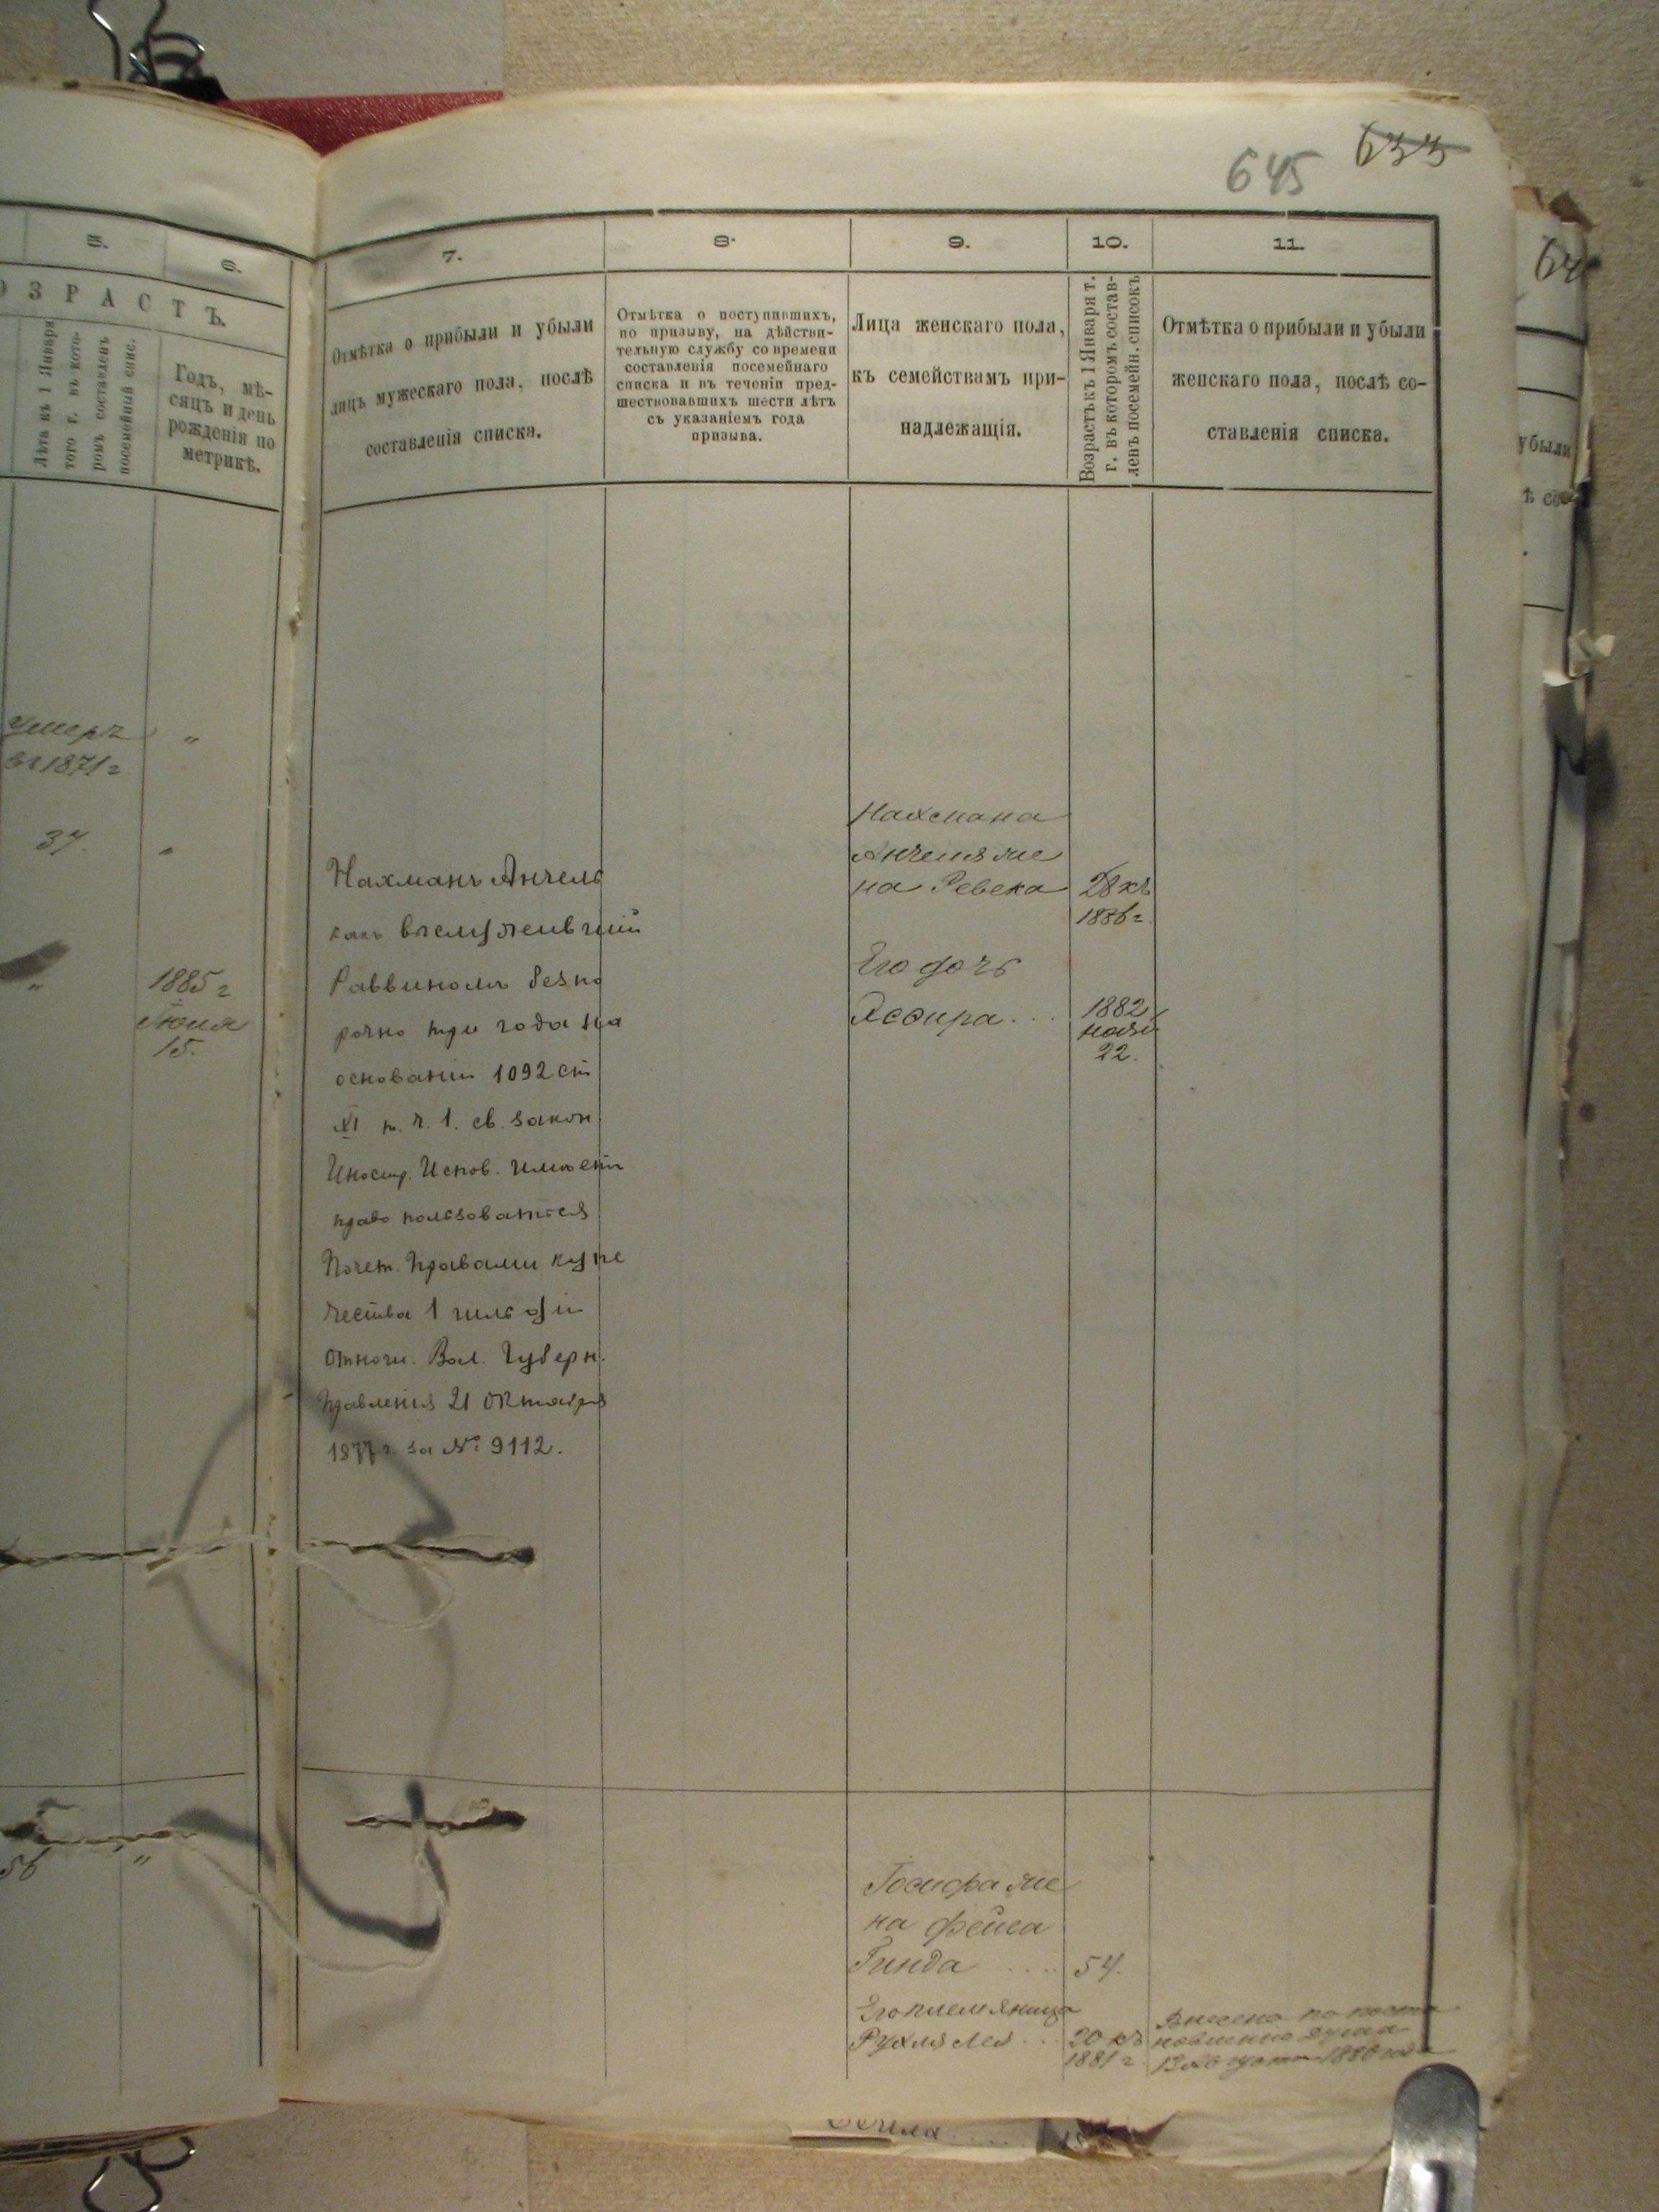 645 633
5.
6.
ОЗРАСТЪ.
Лѣта къ 1 Января
того г. въ кото-
ромъ составленъ
посемейный спис.
Годъ, мѣ-
сяцъ и день
рожденія по
метрикѣ.
умеръ "
въ 1871 г
37. "
" 1885 г
Іюня
15.
56 "
7.
8.
9.
10.
11.
Отмѣтка о прибыли и убыли
лицъ мужескаго пола, послѣ
составленія списка.
Отмѣтка о поступившихъ,
по призыву, на дѣйстви-
тельную службу со времени
составленія посемейнаго
списка и въ теченіи пред-
шествовавшихъ шести лѣтъ
съ указаніемъ года
призыва.
Лица женскаго пола,
къ семействамъ при-
надлежащія.
Возрастъ къ 1 Января т.
г. въ которомъ состав-
ленъ посемейн. списокъ
Отмѣтка о прибыли и убыли
женскаго пола, послѣ со-
ставленія списка.
Нахманъ Анчель
какъ выслужившій
Раввиномъ безпо
рочно три года на
основаніи 1092 ст
XI т. ч. 1. св. закон.
Иностр. Испов. имѣетъ
право пользоваться
Почет. правами купе
чества 1 гильдіи
отнош. Вол. Губерн.
Правленія 21 Октября
1877 г. за № 9112.
Нахмана
Анчеля же
на Ревека 28 къ
1886 г.
Его дочь
Эсфира... 1882
22.
Іосифа же
на Фейга
Гинда .... 54.
Его племяница
Рухля Лея ... 20 къ
1881 г
Внесена по поста
новленію Думы
убыли
ѣ со